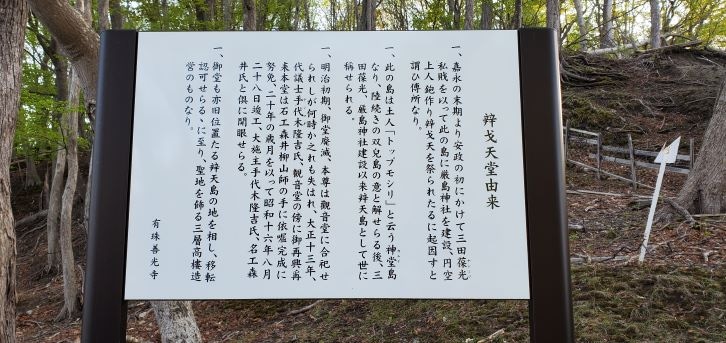 辨戈天堂由来
一、嘉永の末期より安政の初にかけて三田葆光
私財を以って此の島に厳島神社を建設、円空
上人鉈作り辨戈天を祭られたるに起因すと
謂ひ傳所なり。
一、此の島は土人「トップモシリ」と云う神堂島
なり、陸続きの双兒島の意と解せらる後、三
田葆光、厳島神社建設以来辨天島として世に
称せられる。
一、明治初期、御堂廃滅、本尊は觀音堂に合祀せ
られしが何時か之れも失はれ、大正十三年、
代議士手代木隆吉氏、観音堂の傍に御再興再
来本堂は石工森井柳山師の手に依嘱完成に
努免、二十年の歳月を以って昭和十六年八月
二十八日竣工、大施主手代木隆吉氏、名工森
井氏と倶に開眼せらる。
一、御堂も亦旧位置たる辨天島の地を相し、移転
認可せらるゝに至り、聖地を飾る三層高樓造
営のものなり。
有珠善光寺